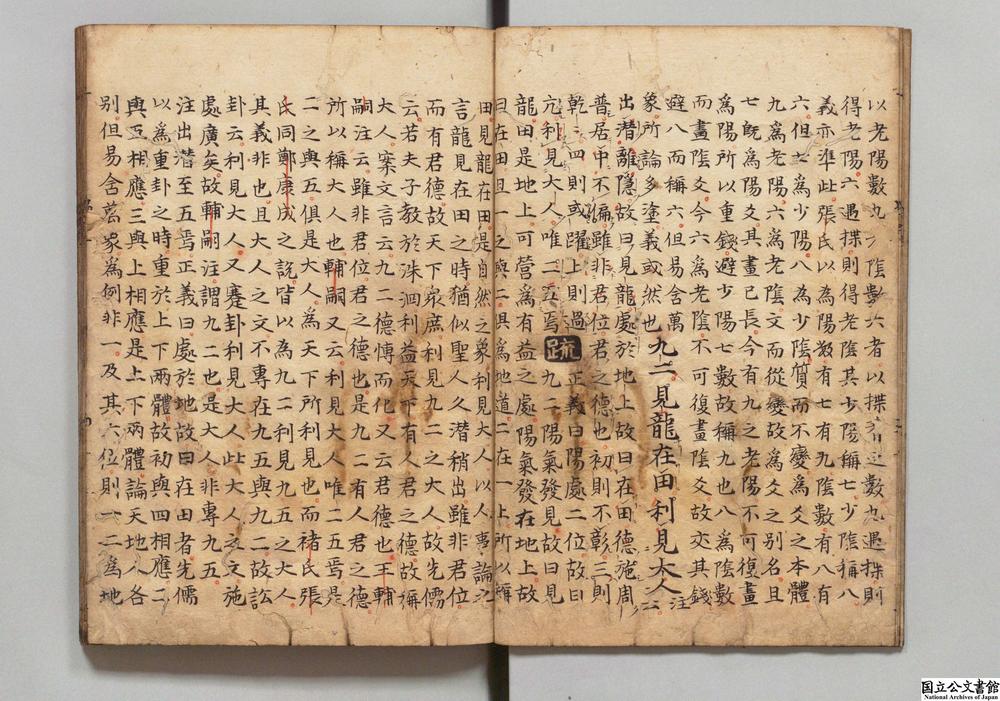 以老陽數九老陰數六者以揲蓍之數九遇揲則
得老陽六遇揲則得老陰其少陽稱七少陰稱八
義亦准此張氏以為陽數有七有九陰數有八有
六但七為少陽八為少陰質而不變為爻之本體
九為老陽六為老陰文而從變故為爻之別名且
七既為陽爻其畫已長今有九之老陽不可復畫
為陽所以重錢避少陽七數故稱九也八為陰數
而畫陰爻今六為老陰不可復畫陰爻故交其錢
避八而稱六但易含萬
象所論多塗義或然也九二見龍在田利見大人 注
出潛離隱故曰見龍處於地上故曰在田德施周
普居中不偏雖非君位君之德也初則不彰三則
乾乾四則或躍上則過亢利見大人唯二五焉 疏 正義曰陽處二位故曰
九二陽氣發見故曰見
龍田是地上可營為有益之處陽氣發在地上故
曰在田且一之與二俱為地道二在一上所以稱
田見龍在田是自然之象利見大人以人事論之
言龍見在田之時猶似聖人久潛稍出雖非君位
而有君德故天下眾庶利見九二之大人故先儒
云若夫子教於洙泗利益天下有人君之德故稱
大人案文言云九二德博而化又云君德也王輔
嗣注云雖非君位君之德也是九二有人君之德
所以稱大人也輔嗣又云利見大人唯二五焉是
二之與五俱是大人為天下所利見也而褚氏張
氏同鄭康成之說皆以為九二利見九五之大人
其義非也且大人之文不專在九五與九二故訟
卦云利見大人又蹇卦利見大人此大人之文施
處廣矣故輔嗣注謂九二也是大人非專九五
注出潛至五焉正義曰處於地故曰在田者先儒
以為重卦之時重於上下兩體故初與四相應二
與五相應三與上相應是上下兩體論天地人各
別但易含萬象為例非一及其六位則一二為地
国立公文書館
National Archives of Japan